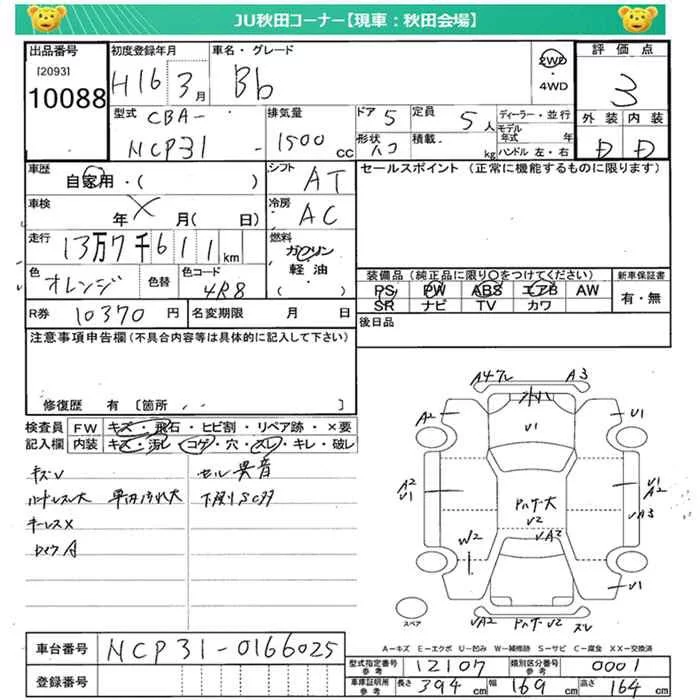 JU秋田コーナー【現車：秋田会場】
出品番号 初度登録年月 車名・グレード 評価点
[2093]
10088
H16 3月 Bb 2WD・4WD 3
型式 CBA- 排気量 ドア 5 定員 5人 ディーラー・並行 外装 内装
NCP31 - 1500cc 形状 ハコ 積載 kg モデル年式 年 D D
ハンドル 左・右
車歴 シフト セールスポイント（正常に機能するものに限ります）
自家用・( ) AT
車検 冷房
年 月( 日) AC
走行 燃料
13万7千611km ガソリン
軽油
( )
色 色替 色コード 装備品（純正品に限り○をつけてください） 新車保証書
オレンジ 4R8 PS PW ABS エアB AW 有・無
SR ナビ TV カワ
R券 10370円 名変期限 月 日 後日品
注意事項申告欄（不具合内容等は具体的に記入して下さい）
修復歴 有 [箇所 ]
検査員 FW キズ・飛石・ヒビ割・リペア跡・×要
記入欄 内装 キズ・汚レ・コゲ・穴・スレ・キレ・破レ
キズV セル異音
ハンドルスレ大 下廻りSCサ
キーレス×
A3
A2 U1
U1
A2 U1
U1 A2
VA3
U2
VA2
W2
U1
VA2 スレ
スペア
A-キズ E-エクボ U-凹み W-補修跡 S-サビ C-腐食 XX-交換済
車台番号 NCP31-0166025
登録番号
型式指定番号 参考 12107 類別区分番号 参考 0001
車庫証明所 参考 長さ 394cm 幅 169cm 高さ 164cm